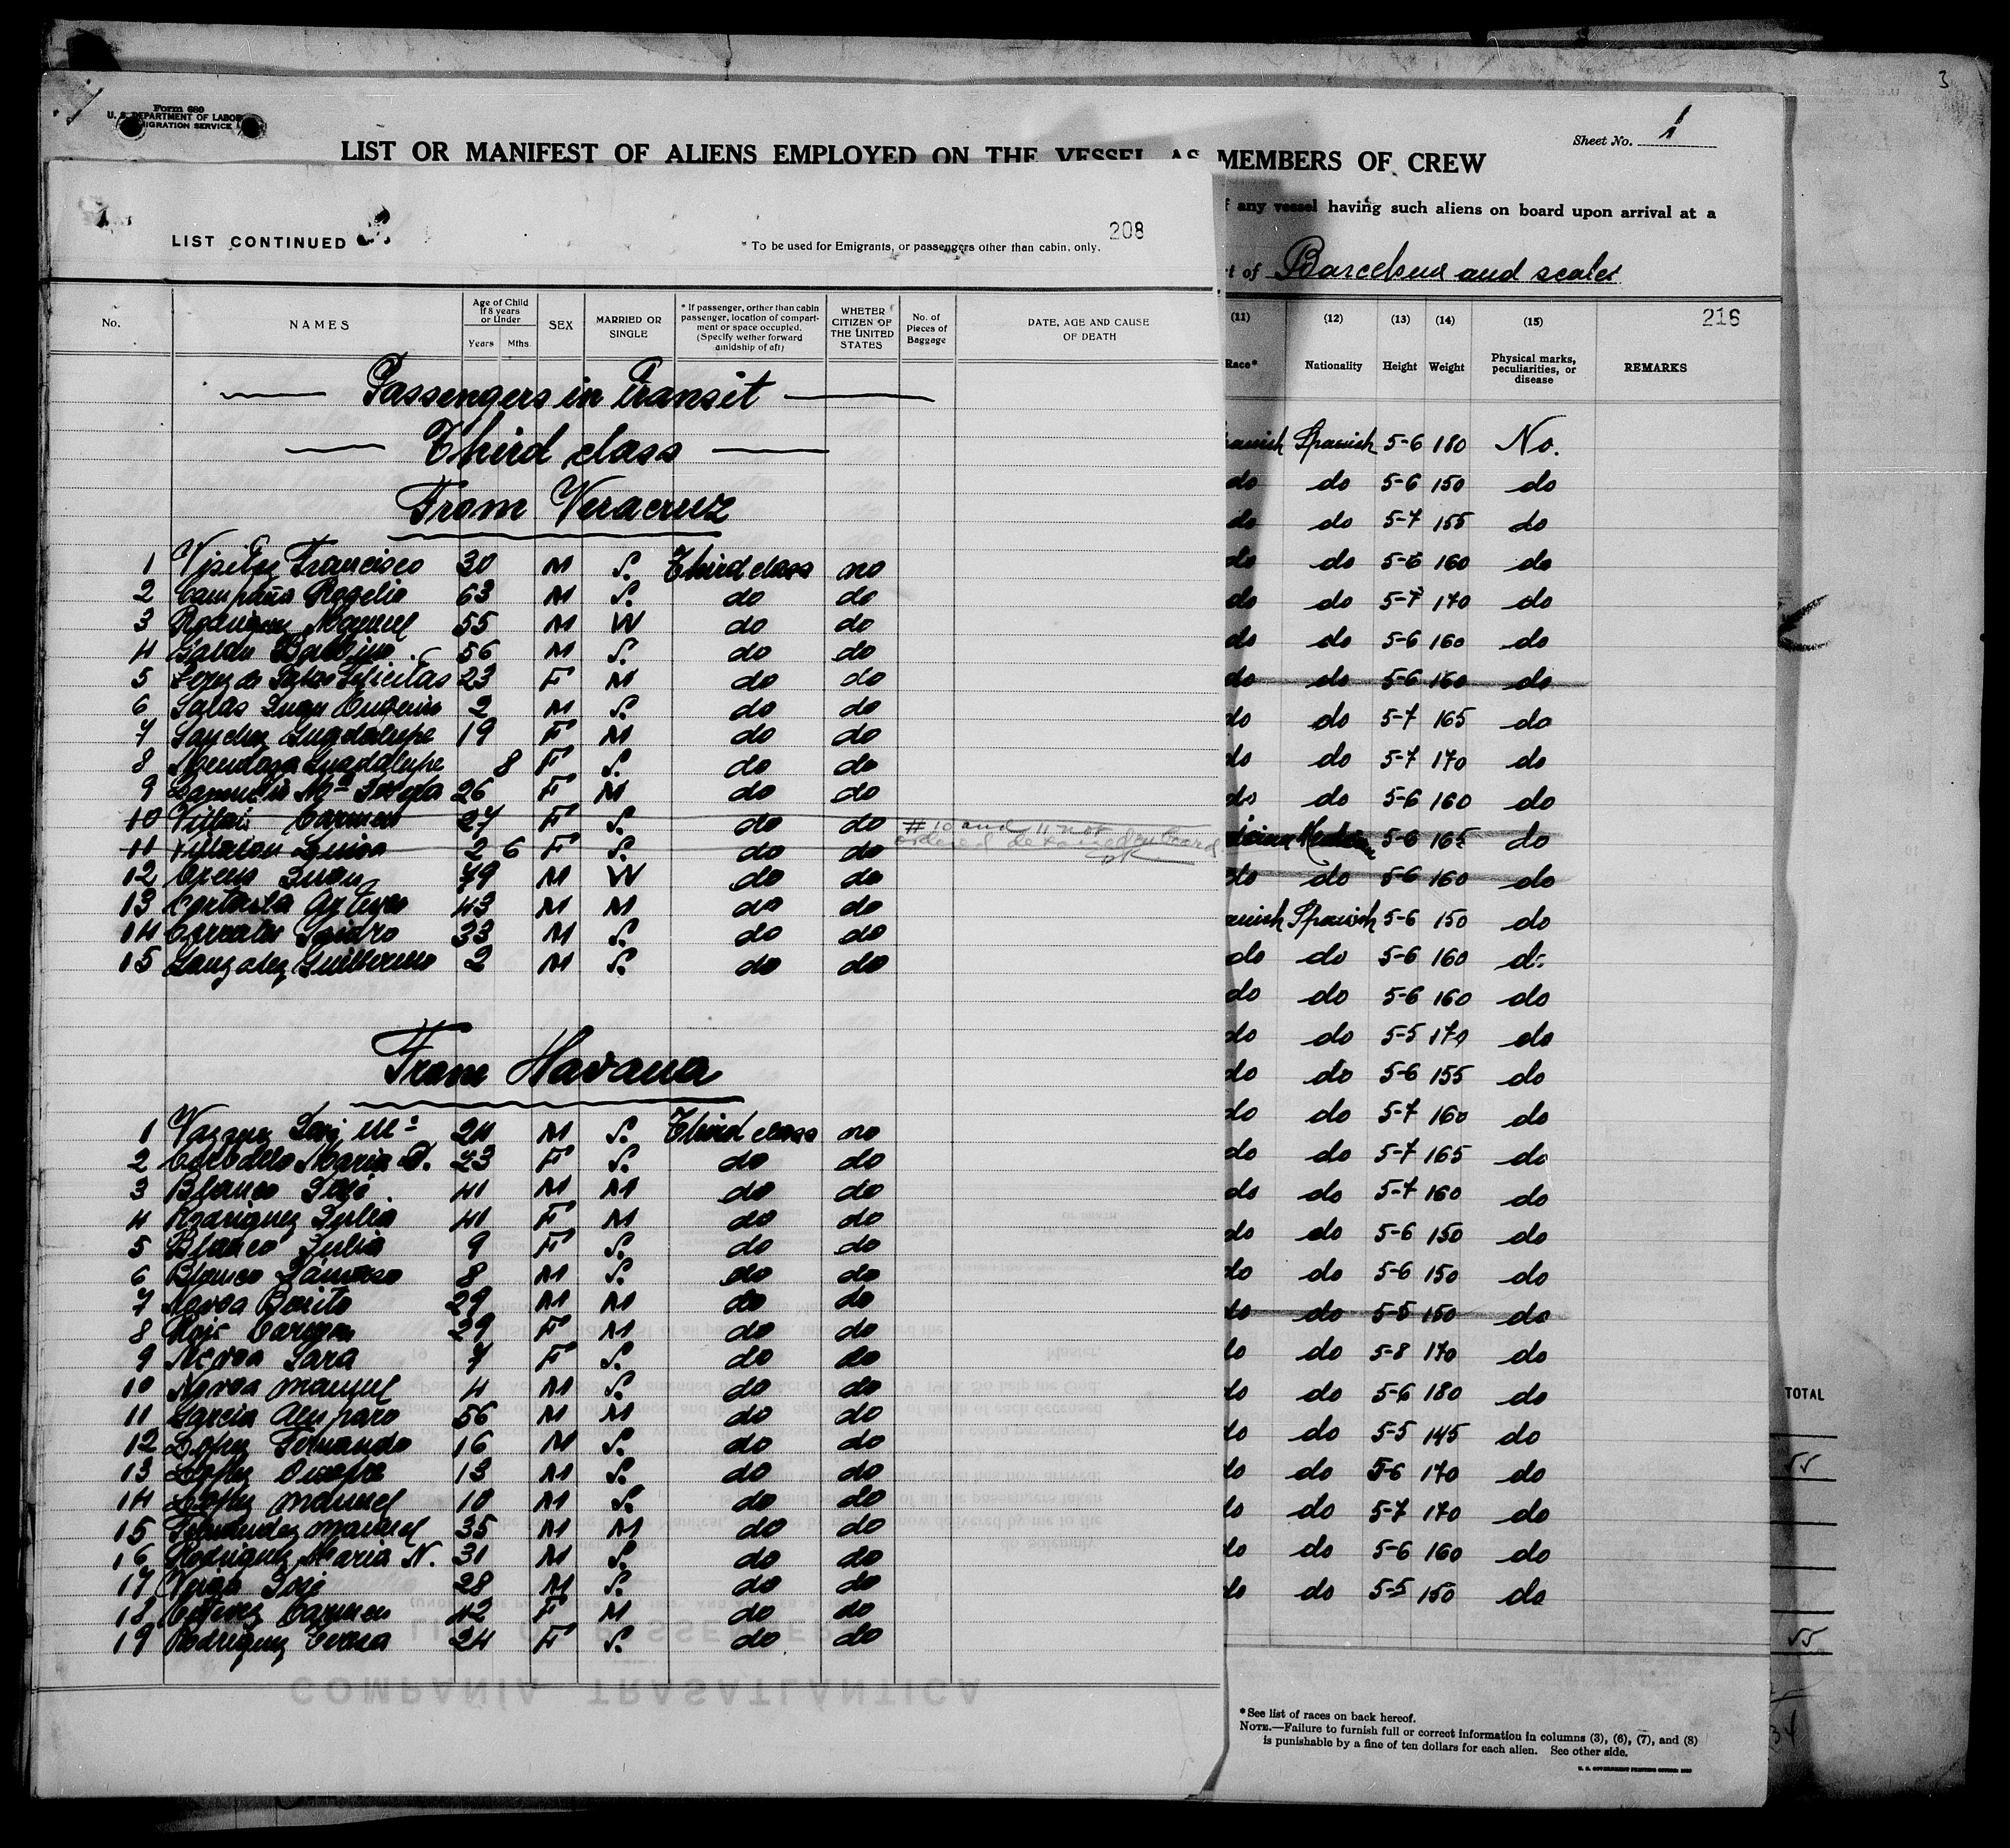 Form 680
U. S. DEPARTMENT OF LABOR
IMMIGRATION SERVICE
Sheet No. 1
3
LIST OR MANIFEST OF ALIENS EMPLOYED ON THE VESSEL AS MEMBERS OF CREW
any vessel having such aliens on board upon arrival at a
of Barcelona and scales
LIST CONTINUED
* To be used for Emigrants, or passengers other than cabin, only.
208
No.
NAMES
Age of Child If 8 years or Under
Years Mths.
SEX
MARRIED OR SINGLE
* If passenger, orther than cabin passenger, location of compartment or space occupied. (Specify wether forward amidship of aft)
WHETER CITIZEN OF THE UNITED STATES
No. of Pieces of Baggage
DATE, AGE AND CAUSE OF DEATH
Passengers in transit
Third class
From Veracruz
1 Francisco 30 M S. Third class no
2 Campaña Rogelio 63 M S. do do
3 Rodriguez Manuel 55 M W do do
4 Balbino 56 M S. do do
5 Lopez de Felicitas 23 F M do do
6 Salas Juan Eugenio 2 M S. do do
7 Sanchez Guadalupe 19 F M do do
8 Mendoza Guadalupe 8 F S. do do
9 Mª 26 F M do do
10 Carmen 27 F S. do do # 10 and 11 not
11 Luisa 2 6 F S. do do ordered detained on board
12 Juan 79 M W do do
13 Arturo 43 M M do do
14 Isidro 33 M S. do do
15 Gonzalez Guillermo 2 M S. do do
From Havana
1 Vazquez José Mª 24 M S. Third class no
2 Maria 23 F S. do do
3 Blanco José 41 M M do do
4 Rodriguez Julia 41 F M do do
5 Blanco Julia 9 F S. do do
6 Blanco Damaso 8 M S. do do
7 Novoa Benito 29 M M do do
8 Carmen 29 F M do do
9 Novoa Sara 7 F S. do do
10 Novoa Manuel 4 M S. do do
11 Garcia Amparo 56 M M do do
12 Lopez Fernando 16 M S. do do
13 Lopez 13 M S. do do
14 Lopez Manuel 10 M S. do do
15 Fernandez Manuel 35 M M do do
16 Rodriguez Maria N. 31 M S. do do
17 José 28 M S. do do
18 Carmen 42 F M do do
19 Rodriguez Teresa 24 F S. do do
COMPAÑIA TRASATLANTICA
(11) (12) (13) (14) (15) 216
Race* Nationality Height Weight Physical marks, peculiarities, or disease REMARKS
Spanish Spanish 5-6 180 No.
do do 5-6 150 do
do do 5-7 155 do
do do 5-6 160 do
do do 5-7 170 do
do do 5-6 160 do
do do 5-6 160 do
do do 5-7 165 do
do do 5-7 170 do
do do 5-6 160 do
5-6 165 do
do do 5-6 160 do
Spanish Spanish 5-6 150 do
do do 5-6 160 do
do do 5-6 160 do
do do 5-5 170 do
do do 5-6 155 do
do do 5-7 160 do
do do 5-7 165 do
do do 5-7 160 do
do do 5-6 150 do
do do 5-6 150 do
do do 5-5 150 do
do do 5-8 170 do
do do 5-6 180 do
do do 5-5 145 do
do do 5-6 170 do
do do 5-7 170 do
do do 5-6 160 do
do do 5-5 150 do
TOTAL
55
55
34
*See list of races on back hereof.
NOTE.—Failure to furnish full or correct information in columns (3), (6), (7), and (8)
is punishable by a fine of ten dollars for each alien. See other side.